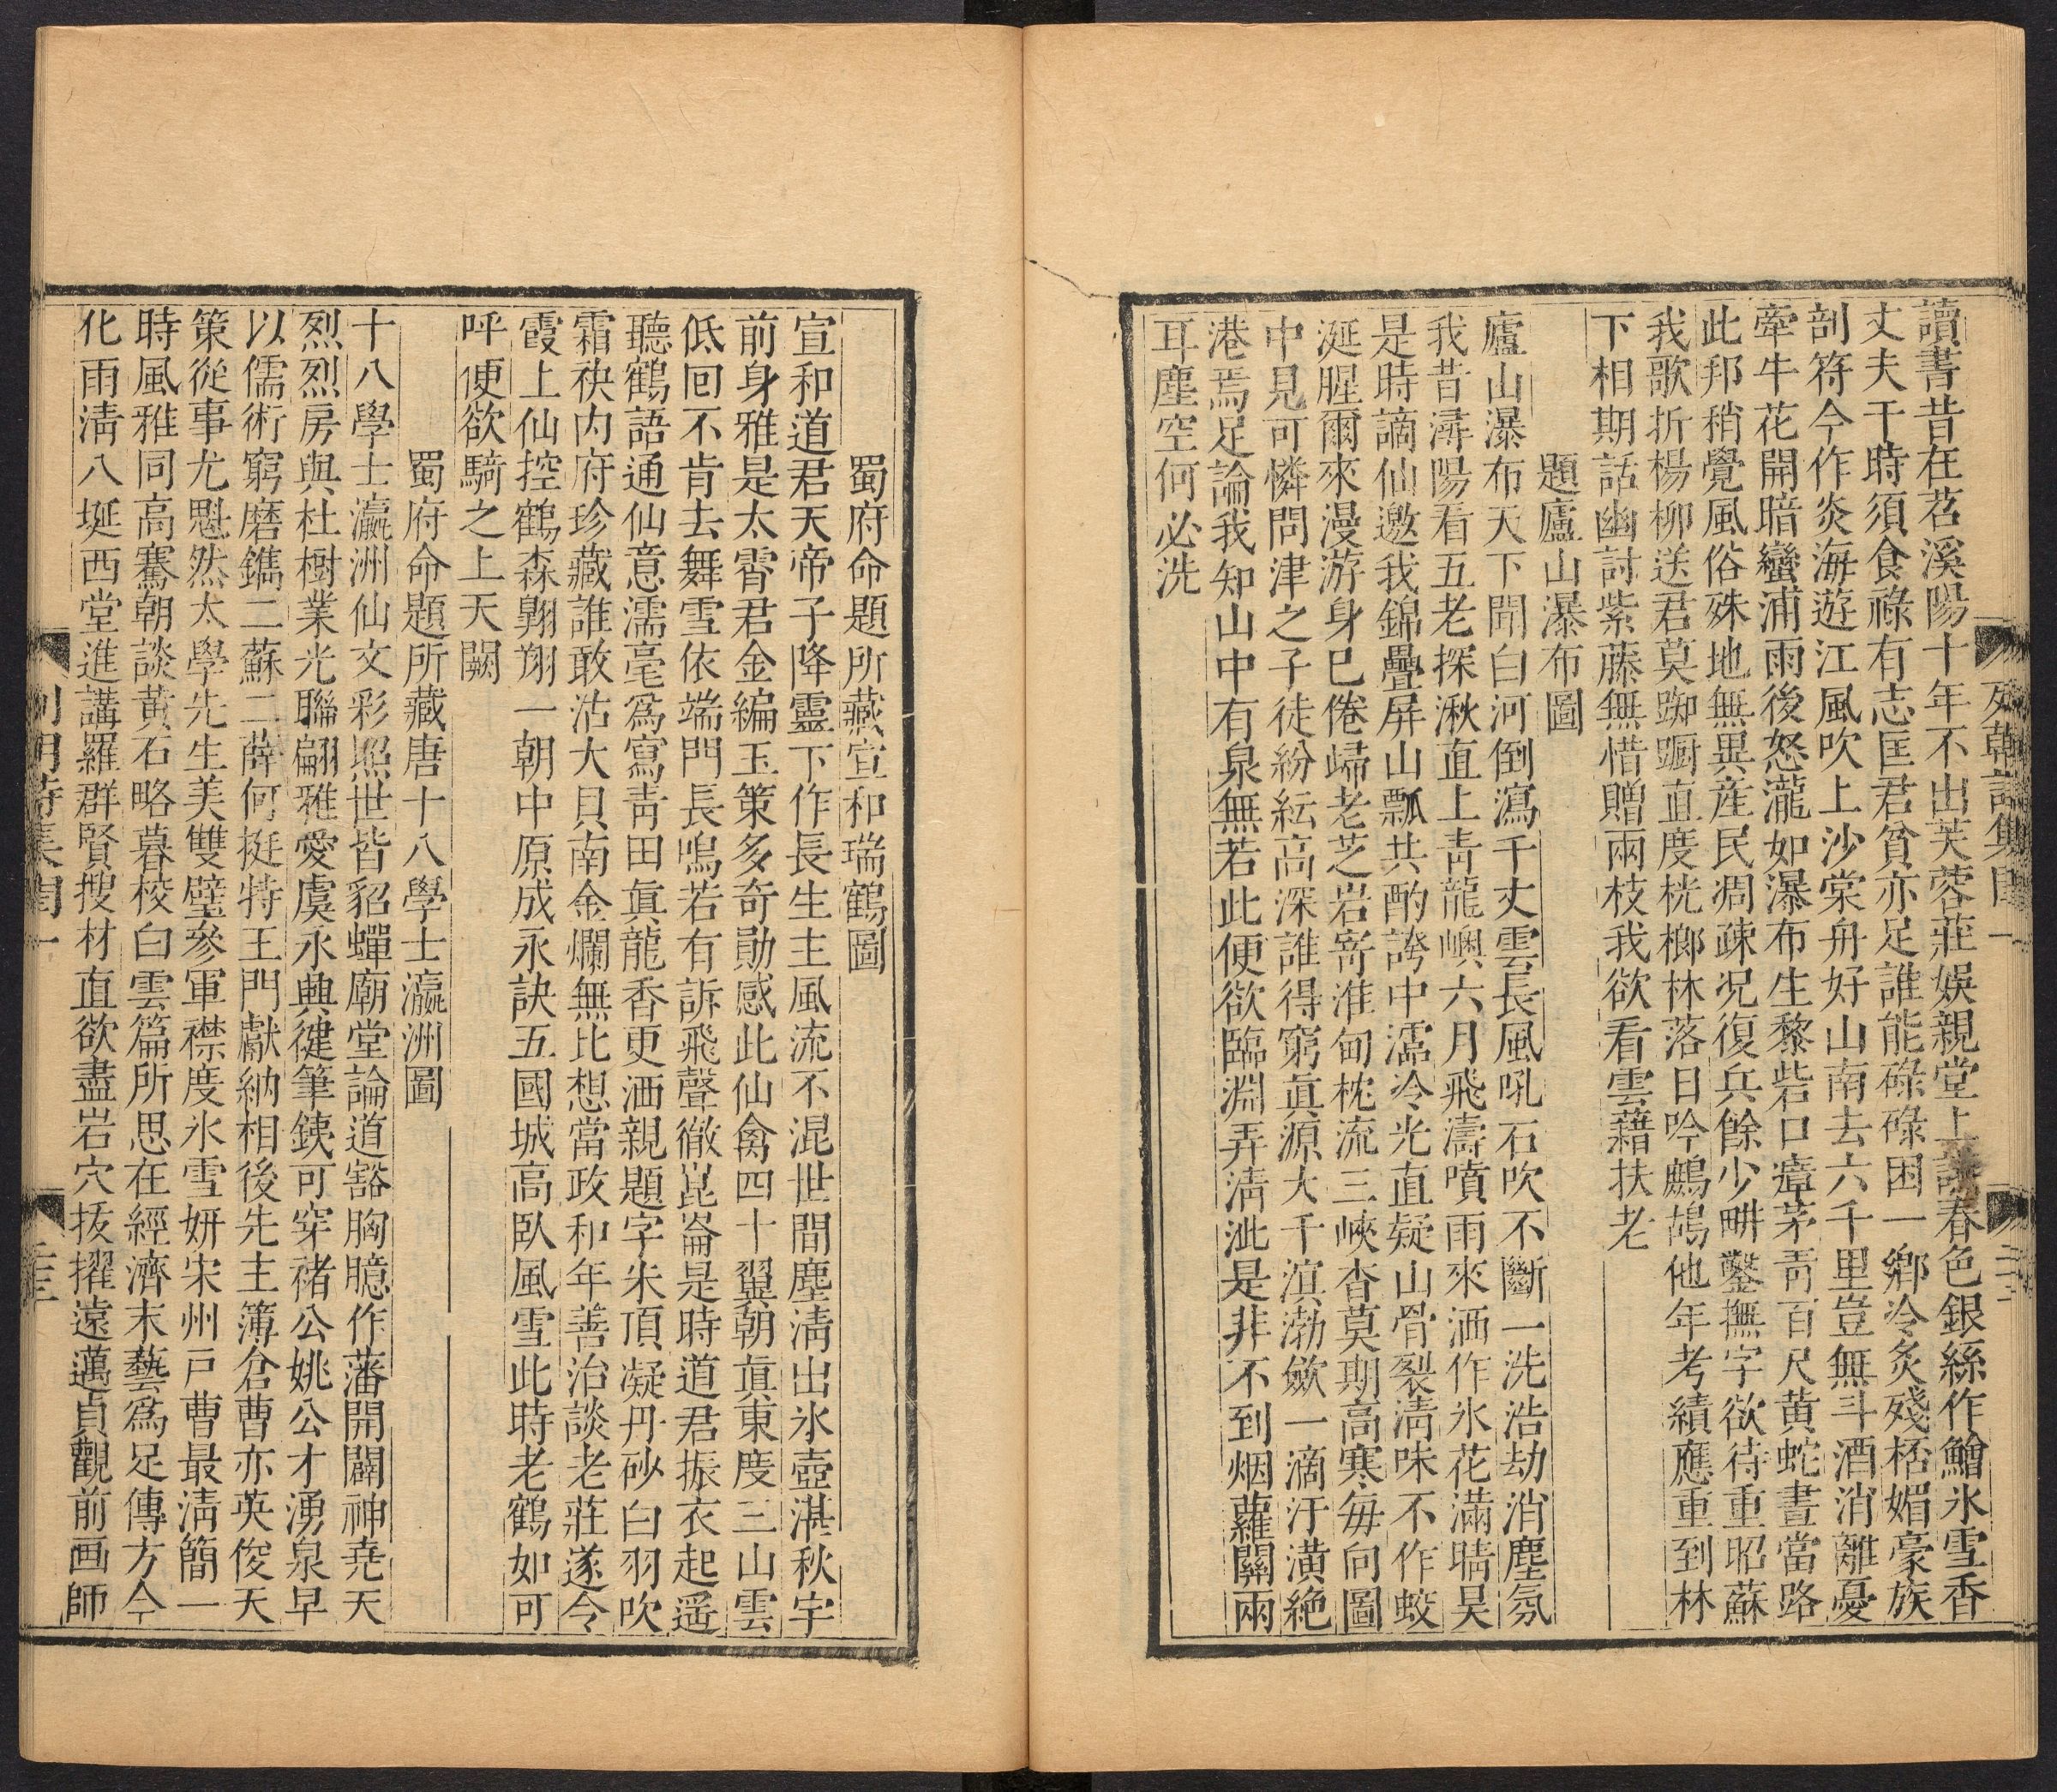 讀書昔在苕溪陽十年不出芙蓉莊娛親堂上春色銀絲作鱠氷雪香
丈夫干時須食祿有志匡君貧亦足誰能碌碌困一鄉冷炙殘桮媚豪族
剖符今作炎海遊江風吹上沙棠舟好山南去六千里豈無斗酒消離憂
牽牛花開暗蠻浦雨後怒瀧如瀑布生黎砦口瘴茅靑百尺黄蛇晝當路
此邦稍覺風俗殊地無異産民凋疎况復兵餘少畊鑿撫字欲待重昭蘇
我歌折楊柳送君莫踟躕直度桄榔林落日吟鷓鴣他年考績應重到林
下相期話幽討紫藤無惜贈兩枝我欲看雲藉扶老
題廬山瀑布圖
廬山瀑布天下聞白河倒瀉千丈雲長風吼石吹不斷一洗浩劫消塵氛
我昔潯陽看五老探湫直上靑龍㠗六月飛濤噴雨來洒作氷花滿晴昊
是時謫仙邀我錦疊屏山瓢共酌誇中濡冷光直疑山骨裂淸味不作蛟
涎腥爾來漫游身已倦歸老芝岩寄淮甸枕流三峽杳莫期高寒每向圖
中見可憐問津之子徒紛紜高深誰得窮眞源大千溟渤歛一滴汙潢絶
港焉足論我知山中有泉無若此便欲臨淵弄淸泚是非不到烟蘿關兩
耳塵空何必洗
蜀府命題所藏宣和瑞鶴圖
宣和道君天帝子降靈下作長生主風流不混世間塵淸出氷壺湛秋宇
前身雅是太霄君金編玉策多奇勛感此仙禽四十翼朝眞東度三山雲
低回不肯去舞雪依端門長鳴若有訴飛聲徹崑崙是時道君振衣起遥
聽鶴語通仙意濡毫爲寫靑田眞龍香更洒親題字朱頂凝丹砂白羽吹
霜袂内府珍藏誰敢沽大貝南金爛無比想當政和年善治談老莊遂令
霞上仙控鶴森翺翔一朝中原成永訣五國城高臥風雪此時老鶴如可
呼便欲騎之上天闕
蜀府命題所藏唐十八學士瀛洲圖
十八學士瀛洲仙文彩照世皆貂蟬廟堂論道豁胸臆作藩開闢神堯天
烈烈房與杜樹業光聯翩雅愛虞永典健筆銕可穿褚公姚公才湧泉早
以儒術窮磨鐫二蘇二薛何挺特王門獻納相後先主簿倉曹亦英俊天
策從事尤魁然太學先生美雙璧參軍襟度氷雪妍宋州戸曹最淸簡一
時風雅同高騫朝談黃石略暮校白雲篇所思在經濟末藝爲足傳方今
化雨淸八埏西堂進講羅群賢搜材直欲盡岩穴拔擢遠邁貞觀前画師